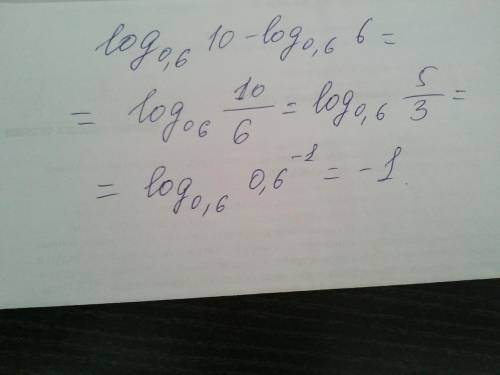 log₀,₆ 10 - log₀,₆ 6 =
= log₀₆ 10/6 = log₀,₆ 5/3 =
= log₀,₆ 0,6⁻¹ = -1.